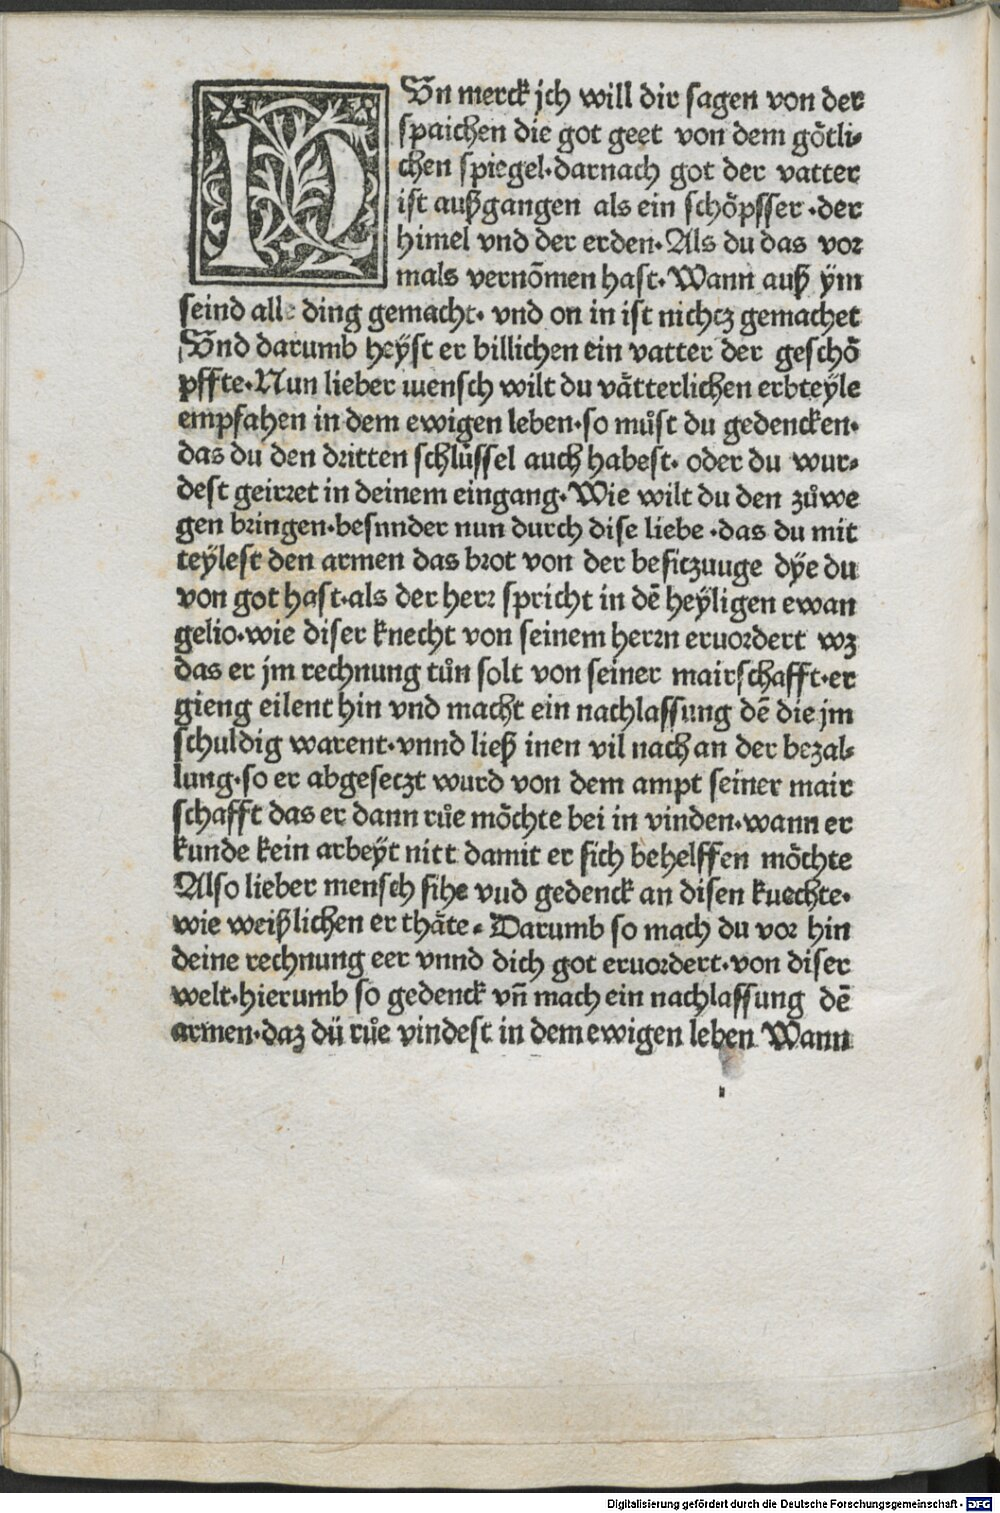 NUn merck jch will dir sagen von der
spaichen die got geet von dem goͤtli⸗
chen spiegel·darnach got der vatter
ist außgangen als ein schoͤpffer ·der
himel vnd der erden· Als du das vor
mals vernōmen hast· Wann auß ÿm
seind alle ding gemacht· vnd on in ist nichtz gemachet
Vnd darumb heÿst er billichen ein vatter der geschoͤ
pffte· Nun lieber mensch wilt du vaͤtterlichen erbteÿle
empfahen in dem ewigen leben·so muͦst du gedencken·
das du den dritten schlüssel auch habest· oder du wur⸗
dest geirret in deinem eingang· Wie wilt du den zuͦwe
gen bringen·besnnder nun durch dise liebe ·das du mit
teÿlest den armen das brot von der besitzuuge dÿe du
von got hast·als der herr spricht in dē heÿligen ewan
gelio·wie diser knecht von seinem herrn eruordert wz
das er jm rechnung tuͦn solt von seiner mairschafft·er
gieng eilent hin vnd macht ein nachlassung dē die jm
schuldig warent·vnnd ließ inen vil nach an der bezal⸗
lung·so er abgesetzt wurd von dem ampt seiner mair
schafft das er dann ruͦe moͤchte bei in vinden·wann er
kunde kein arbeÿt nitt damit er sich behelffen moͤchte
Also lieber mensch sihe vud gedenck an disen kuechte·
wie weißlichen er thaͤte⸗ Darumb so mach du vor hin
deine rechnung eer vnnd dich got eruordert·von diser
welt·hierumb so gedenck vn̄ mach ein nachlassung dē
armen·daz dü ruͦe vindest in dem ewigen leben Wann
Digitalisierung gefördert durch die Deutsche Forschungsgemeinschaft - DFG